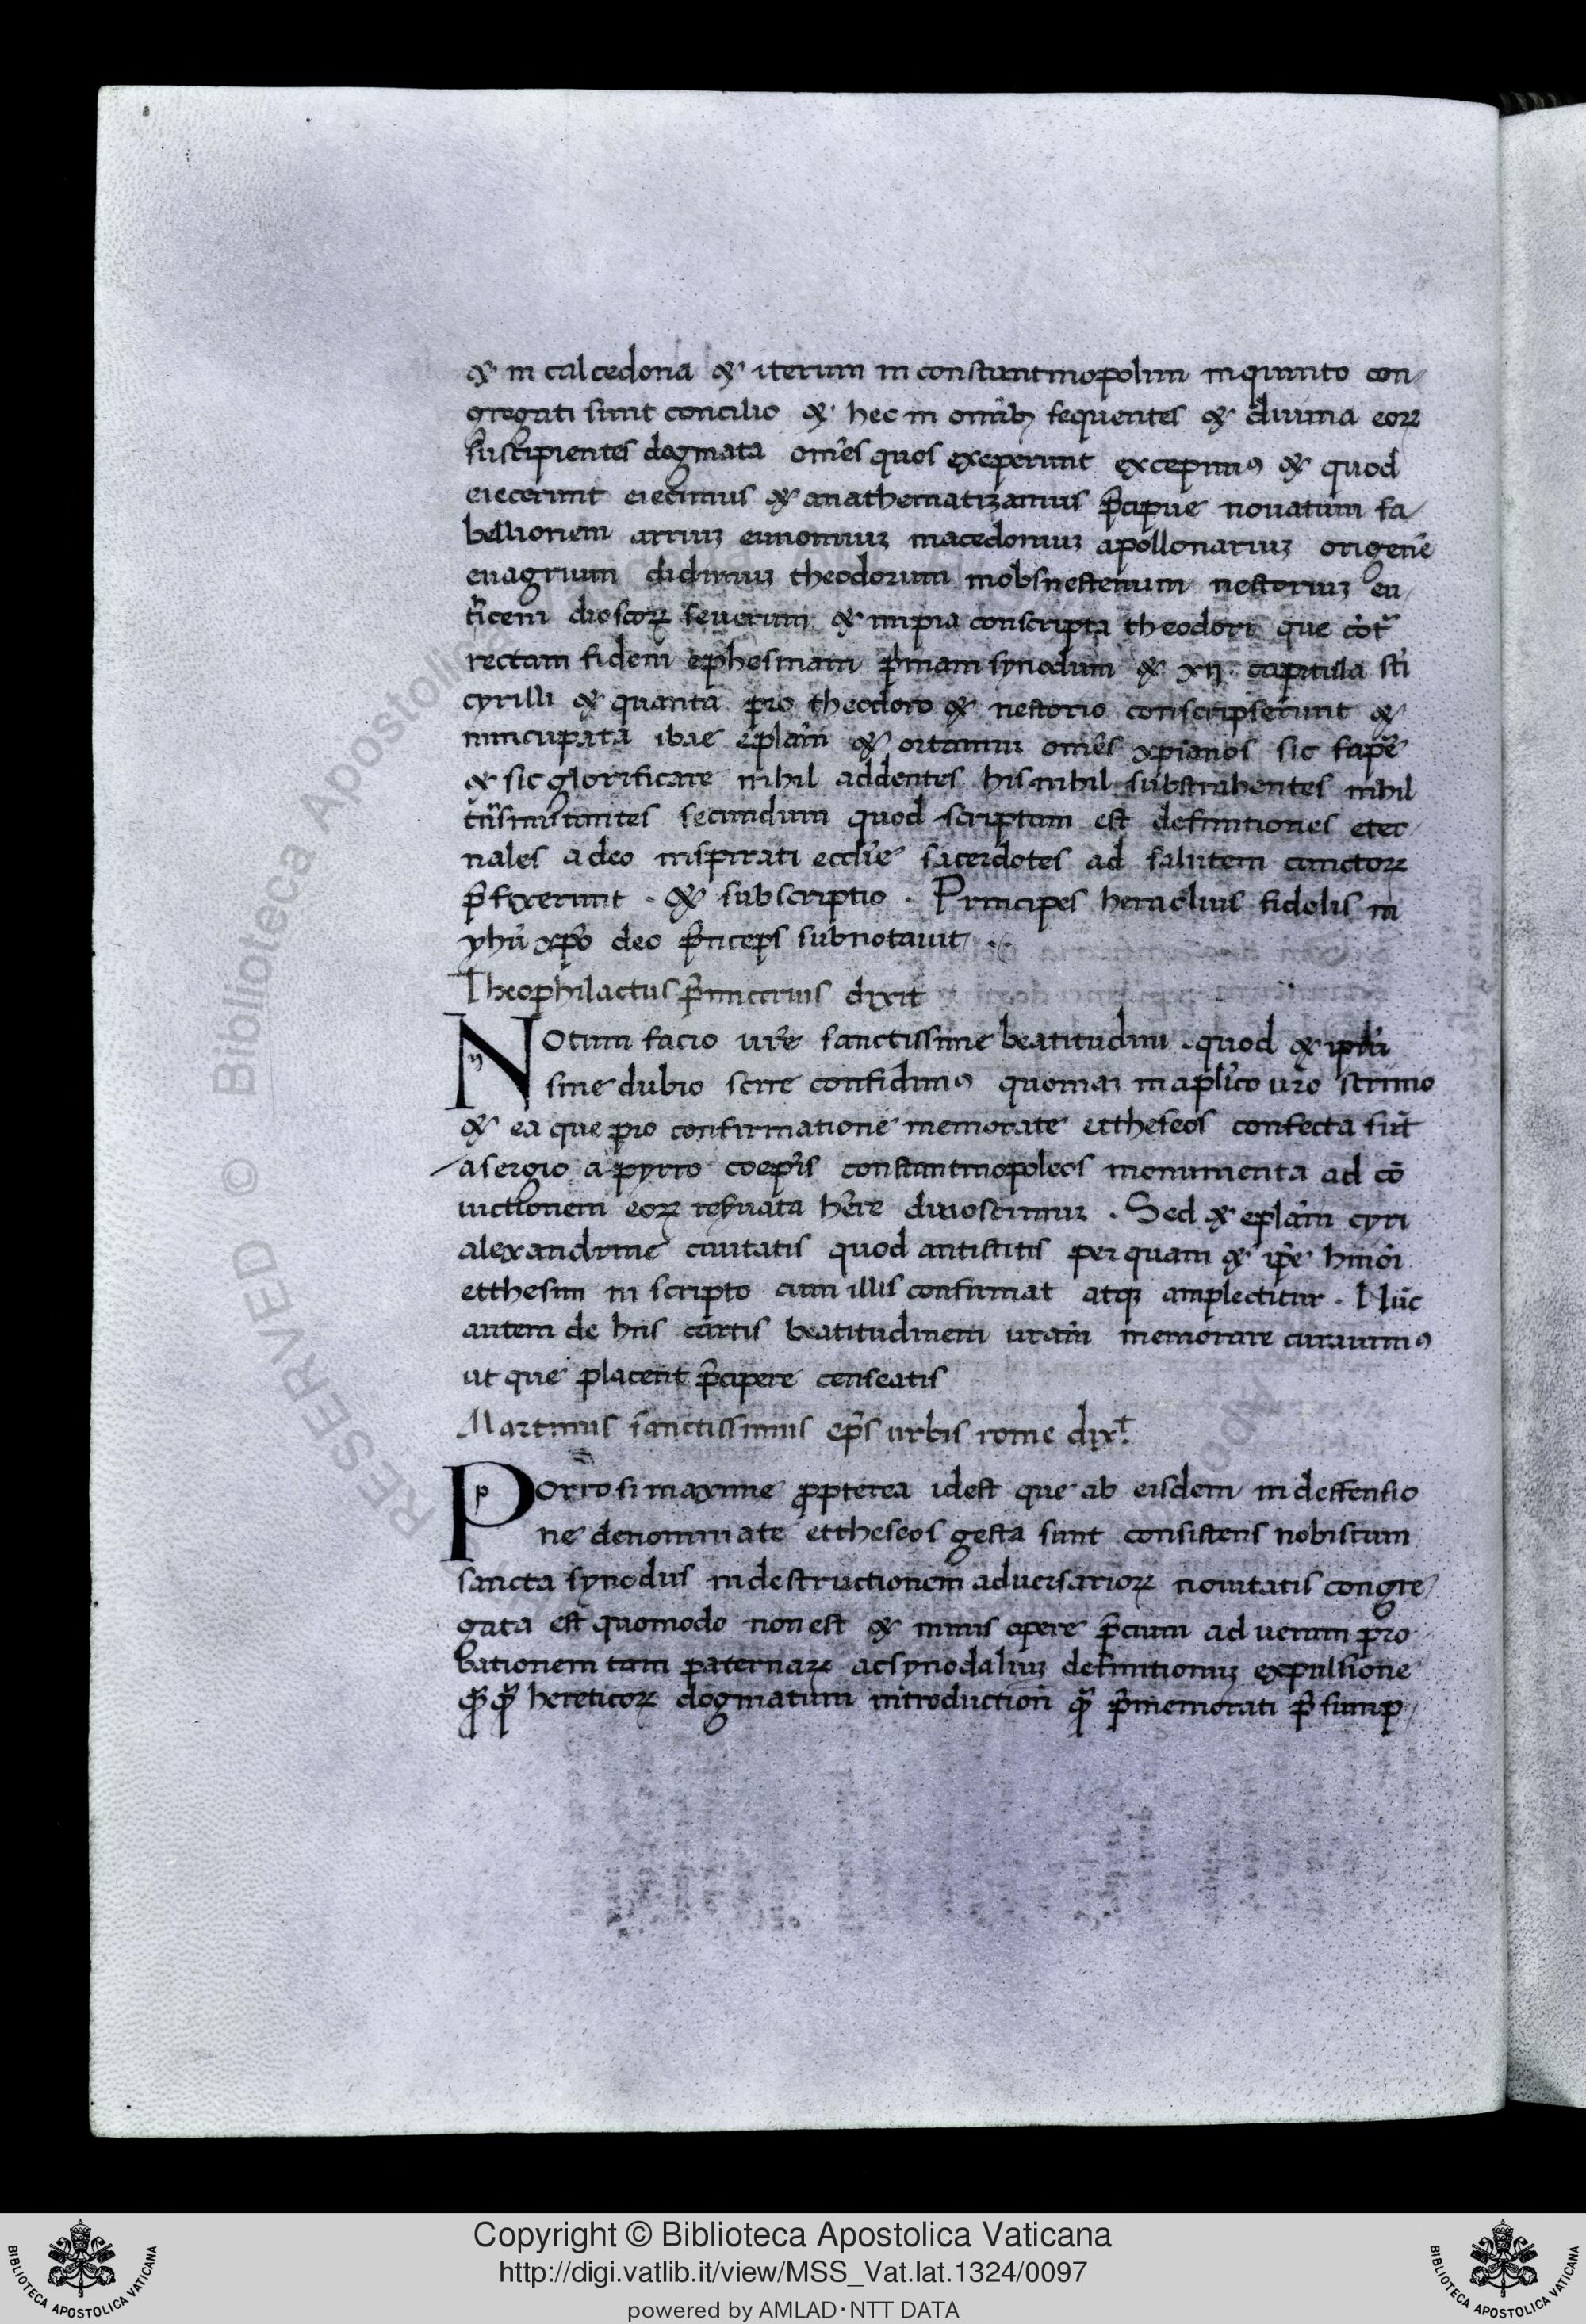 & in calcedona & iterum in constantinopolim inquinto con
gregati sunt concilio & hec in omĩbȝ sequentes & diuina eoꝝ
suscipientes dogmata om̃es quos exeperunt excepimꝰ & quod
eiecerunt eiecimus & anathematizamus p̃cipue nouatum sa
bellionem arriuȝ eunomiuȝ macedoniuȝ apollonariuȝ origenē
euagrium didimuȝ theodorum mobsnestenum nestoriuȝ eu
ticem dioscoꝝ seuerum & impia conscripta theodori que cōt̃
rectam fidem ephesinam p̃mam synodum & xii capitula sc̃i
cyrilli & quanta pro theodoro & nestorio conscripserunt &
nuncupata ibae ep̃lam & ortamur om̃es xp̃ianos sic sapẽ
& sic glorificare nihil addentes his nihil substrahentes nihil
tñsmutantes secundum quod scriptum est definitiones eter
nales adeo inspirati eccl̃ie sacerdotes ad salutem cunctoꝝ
p̃fixerunt · & subscriptio · Principes heraclius fidelis in
yhũ xp̃o deo p̃nceps subnotauit
Theophilactus p̃micerius dixit
Notum facio ur̃e sanctissime beatitudini quod &
sine dubio scire confidimꝰ quoniaȝ in apl̃ico ur̃o scrinio
& ea que pro confirmatione memorate ettheseos confecta sũt
asergio a pyrro coep̃is constantinopoleos monumenta ad cō
uictionem eoꝝ reseruata hẽre dinoscimur · Sed & ep̃lam cyri
alexandrine ciuitatis quod antistitis per quam & ip̃e hmõi
etthesim in scripto cum illis confirmat atqȝ amplectitur · Nũc
autem de hiis cartis beatitudinem ur̃am memorare curauimꝰ
ut que placent p̃cipere censeatis
Martinus sanctissimus ep̃s urbis rome dixt̃
Porro si maxime ꝓpterea idest que ab eisdem in deffensio
ne denominate ettheseos gesta sunt consistens nobiscum
sancta synodus in destructionem aduersarioꝝ nouitatis congre
gata est quomodo non est & nimis opere p̃cium ad ueram pro
bationem tam paternaꝝ acsynodaliuȝ definitionuȝ expulsione
q̃ q̃ hereticoꝝ dogmatum introduction̄ q̃ p̃memorati p̃sump
Copyright © Biblioteca Apostolica Vaticana
http://digi.vatlib.it/view/MSS_Vat.lat.1324/0097
powered by AMLAD·NTT DATA
BIBLIOTECA APOSTOLICA VATICANA
BIBLIOTECA APOSTOLICA VATICANA